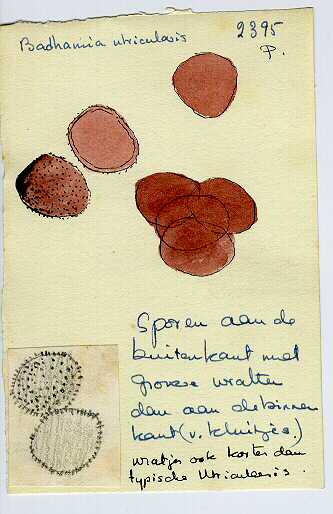 Badhamia utricularis
2395
P.
Sporen aan de
buitenkant met
grovere wratten
dan aan de binnen
kant (v. kluitjes.)
wratjes ook korter dan
typische Utricularis.